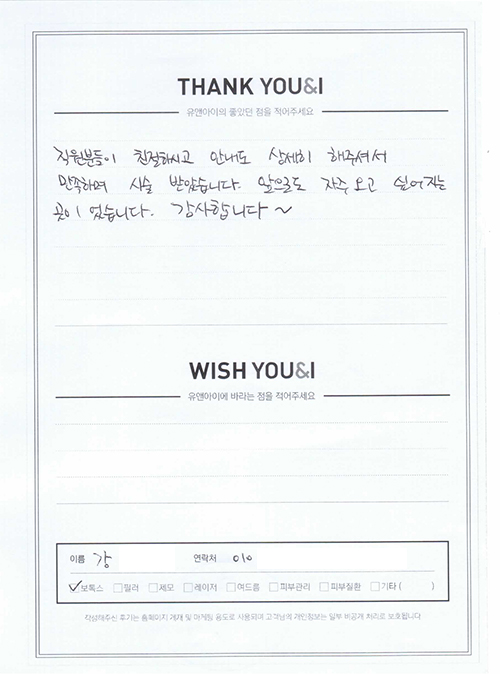 THANK YOU&I
유앤아이의 좋았던 점을 적어주세요
직원분들이 친절하시고 안내도 상세히 해주셔서
만족하며 시술 받았습니다. 앞으로도 자주 오고 싶어지는
곳이 었습니다. 감사합니다 ~
WISH YOU&I
유앤아이에 바라는 점을 적어주세요
이름 강 연락처 010
보톡스 필러 제모 레이저 여드름 피부관리 피부질환 기타 ( )
작성해주신 후기는 홈페이지 게재 및 마케팅 용도로 사용되며 고객님의 개인정보는 일부 비공개 처리로 보호됩니다